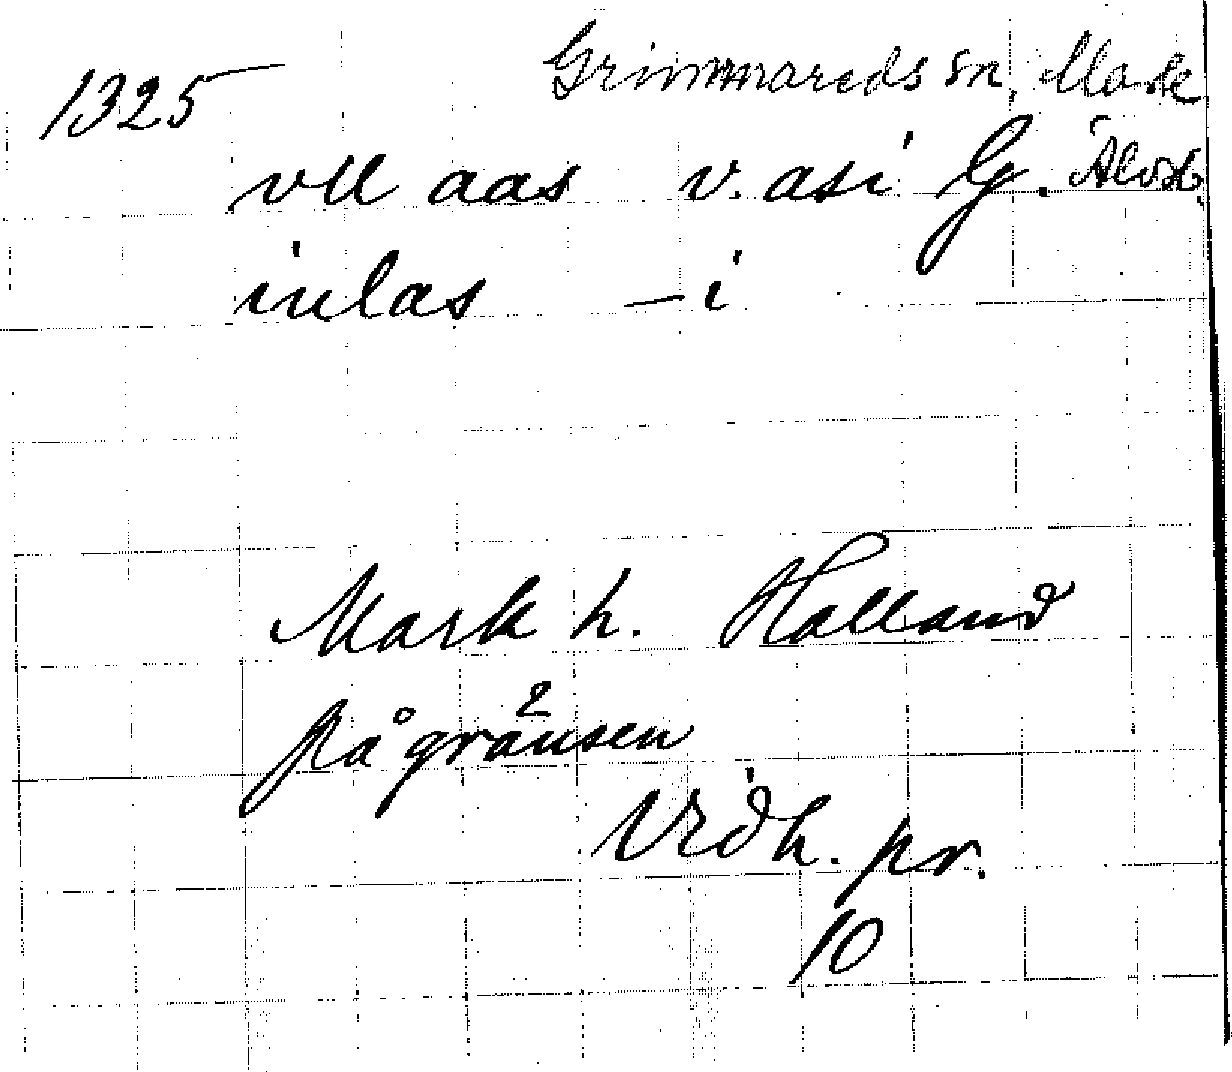 1325 Grimmareds sn, Mark
vll aas v. asi G. Älvsb.
inlas — i
Mark h. Halland
på gränsen
Vidh. pr.
10